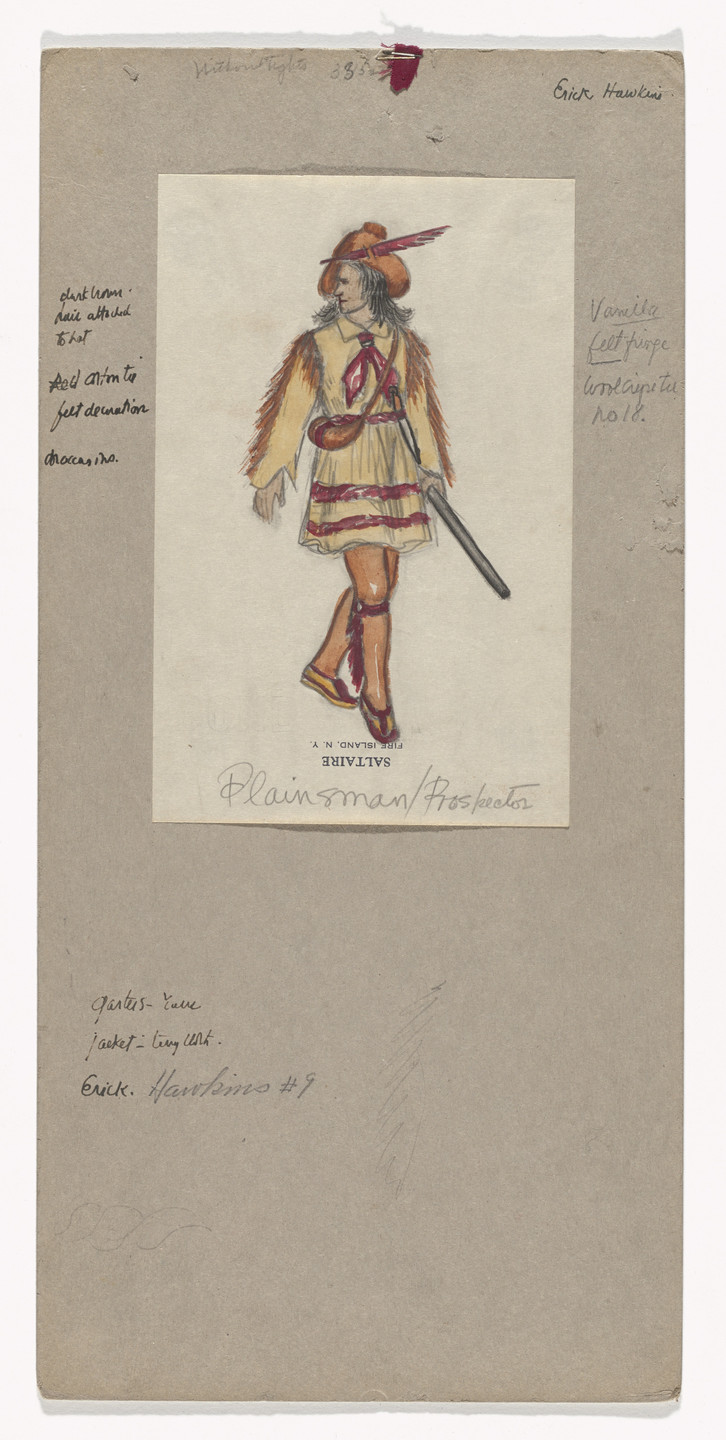 Without Tights 35
Erick Hawkins.
dark brown.
hair attached
to hat
Red cotton tie
felt decoration
moccasins.
Vanilla
felt fringe
Wool crepe
no 18.
FIRE ISLAND, N. Y.
SALTAIRE
Plainsman/Prospector
garters-
jacket - terry cloth.
Erick. Hawkins #9